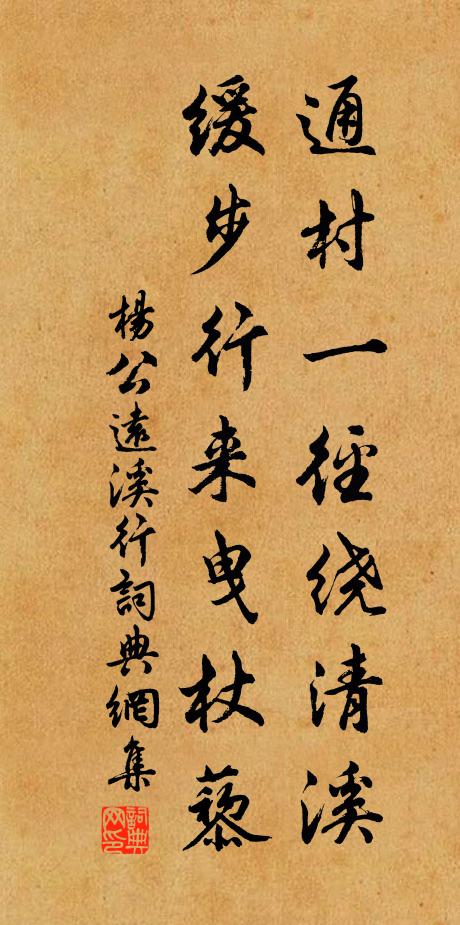 通村一径绕清溪
缓步行来曳杖藜
楊公遠溪行詞典網集
詞典网印